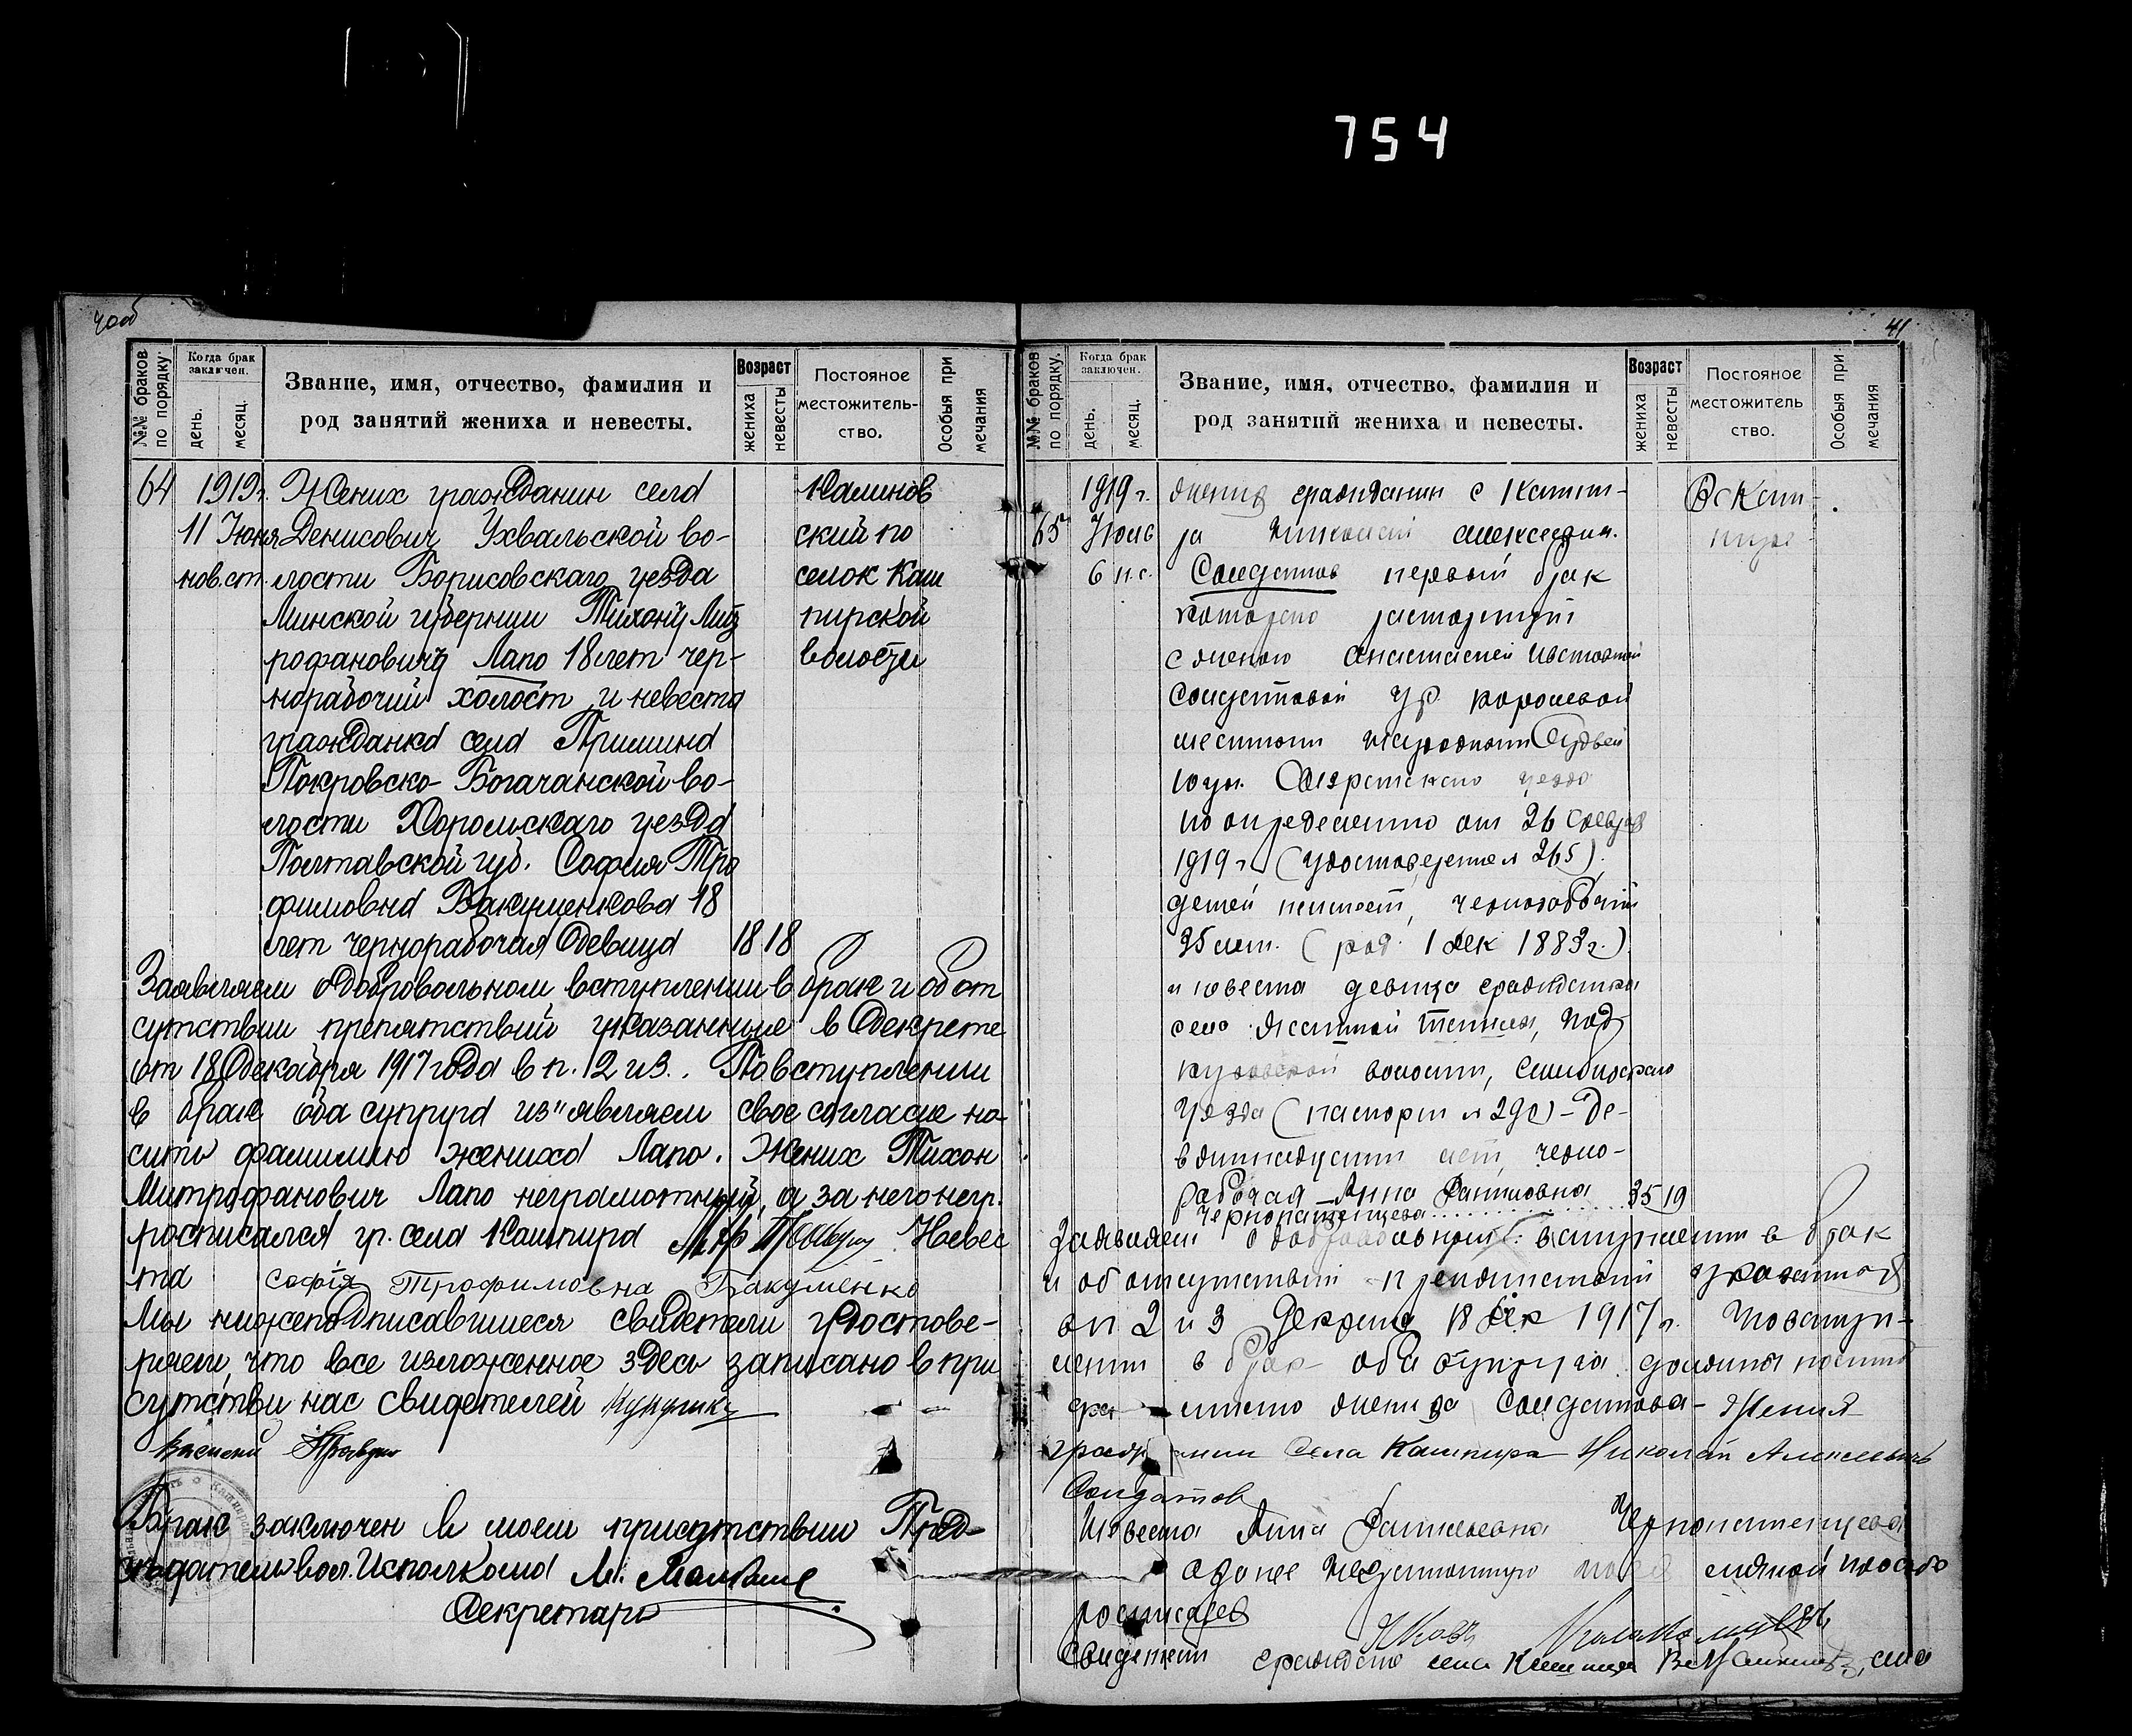 754
40об
№№ браков по порядку.
Когда брак заключен.
день.
месяц.
Звание, имя, отчество, фамилия и
род занятий жениха и невесты.
Возраст
жениха
невесты
Постояное
местожитель-
ство.
Особыя при
мечания
64 1919г. Жених гражданин села Калинов
11 Июня Денисович Ухвальской во- ский по
нов.ст. лости Борисовскаго уезда селок Каш
Минской губернии Тихон Мит пирской
рофанович Лапо 18 лет чер- волости
норабочий холост и невеста
гражданка села Тришина
Покровско-Богачанской во-
лости Хорольскаго уезда
Полтавской губ. София Тро
фимовна Бакуменкова 18
лет чернорабочая девица 18 18
Заявляем о добровольном вступлении в брак и об от
сутствии препятствий указанные в декрете
от 18 декабря 1917 года в п. 1 2 и 3. По вступлении
в брак оба супруга из"являем свое согласие но-
сить фамилию жениха Лапо. Жених Тихон
Митрофанович Лапо неграмотный, а за него негр.
росписался гр. села Кашпира Невес
та Софія Трофимовна Бакуменко
Мы нижеподписавшиеся свидетели удостове-
ряем, что все изложенное здесь записано в при
сутстви нас свидетелей
Брак заключен в моем присутствии Пред-
седатель вол. Исполкома М.
Секретарь
41
№№ браков по порядку.
Когда брак заключен.
день.
месяц.
Звание, имя, отчество, фамилия и
род занятий жениха и невесты.
Возраст
жениха
невесты
Постояное
местожитель
ство.
Особыя при.
мечания
1919 г. жених гражданин с Кашпи- В с Каш-
65 Июль ра Николай Алексеевич. пире
6 н.с. Солдатов первый брак
которого расторгнут
с женою Анастасией
Солдатовой ур Королевой
местным Народным Судьей
10 уч. Сызранского уезда
по определению от 26 февраля
1919 г. (удостоверение № 265).
детей не имеет, чернорабочий
35 лет. (род. 1 дек 1883 г.)
и невеста девица гражданка
села
волости, Симбирскаго
уезда (паспорт № 290) - де-
вятнадцати лет, черно-
рабочая Анна Даниловна 35 19
Чернопатенцева
Заявляем о добровольном вступлении в брак
и об отсутствии препятствий указанных
в п 2 и 3 Декрета 18 дек 1917 г. По вступ-
лении в брак оба супруга должны носить
фа милию жениха Солдатова - Жених
гражд анин Села Кашпира Николай Алексеевич
Солдатов
Невеста Анна Даниловна Чернопатенцева
а за нее неграмотную по ея личной просьбе
росписался
Свидетели граждане села Кашпира